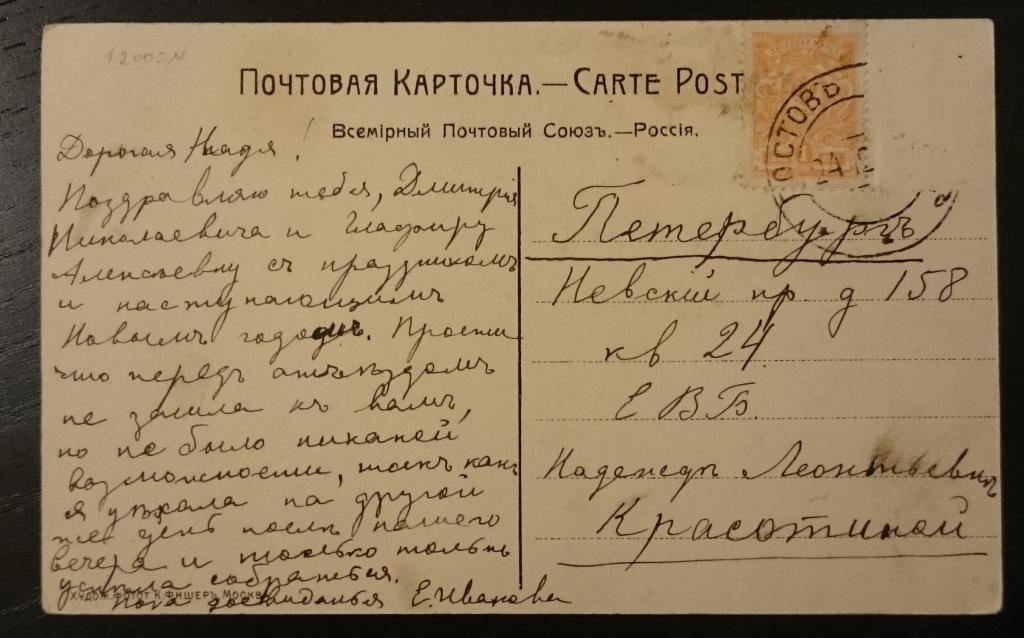 1200=N
Почтовая Карточка.—Carte Post
Всемірный Почтовый Союзъ.—Россія.
Дорогая Надя!
Поздравляю тебя, Дмитрія
Николаевича и
Алексѣевну съ праздникомъ
и наступающимъ
Новымъ годомъ. Прости
что передъ отъѣздомъ
не зашла къ вамъ,
но не было никакой
возможности, такъ какъ
я уѣхала на другой
же день послѣ нашего
вечера и только только
успѣла собраться.
Пока досвиданья Е. Иванова
Худож. Фотот. К. Фишеръ, Москва
остовъ
Петербургъ
Невскій пр. д 158
кв 24.
Е В Б.
Надеждѣ Леонтьевнѣ
Красотиной